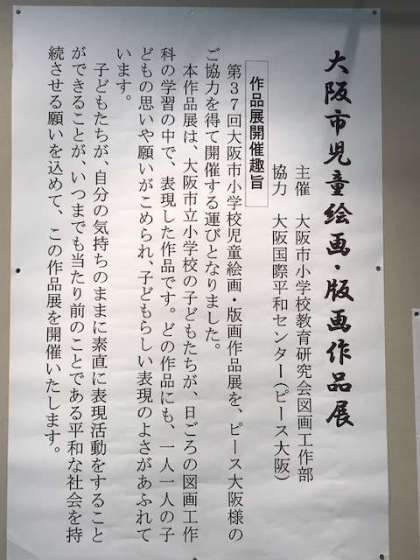 大阪市児童絵画・版画作品展
主催　大阪市小学校教育研究会図画工作部
協力　大阪国際平和センター(ピース大阪)
作品展開催趣旨
第３７回大阪市小学校児童絵画・版画作品展を、ピース大阪様の
ご協力を得て開催する運びとなりました。
本作品展は、大阪市立小学校の子どもたちが、日ごろの図画工作
科の学習の中で、表現した作品です。どの作品にも、一人一人の子
どもの思いや願いがこめられ、子どもらしい表現のよさがあふれて
います。
子どもたちが、自分の気持ちのままに素直に表現活動をすること
ができることが、いつまでも当たり前のことである平和な社会を持
続させる願いを込めて、この作品展を開催いたします。